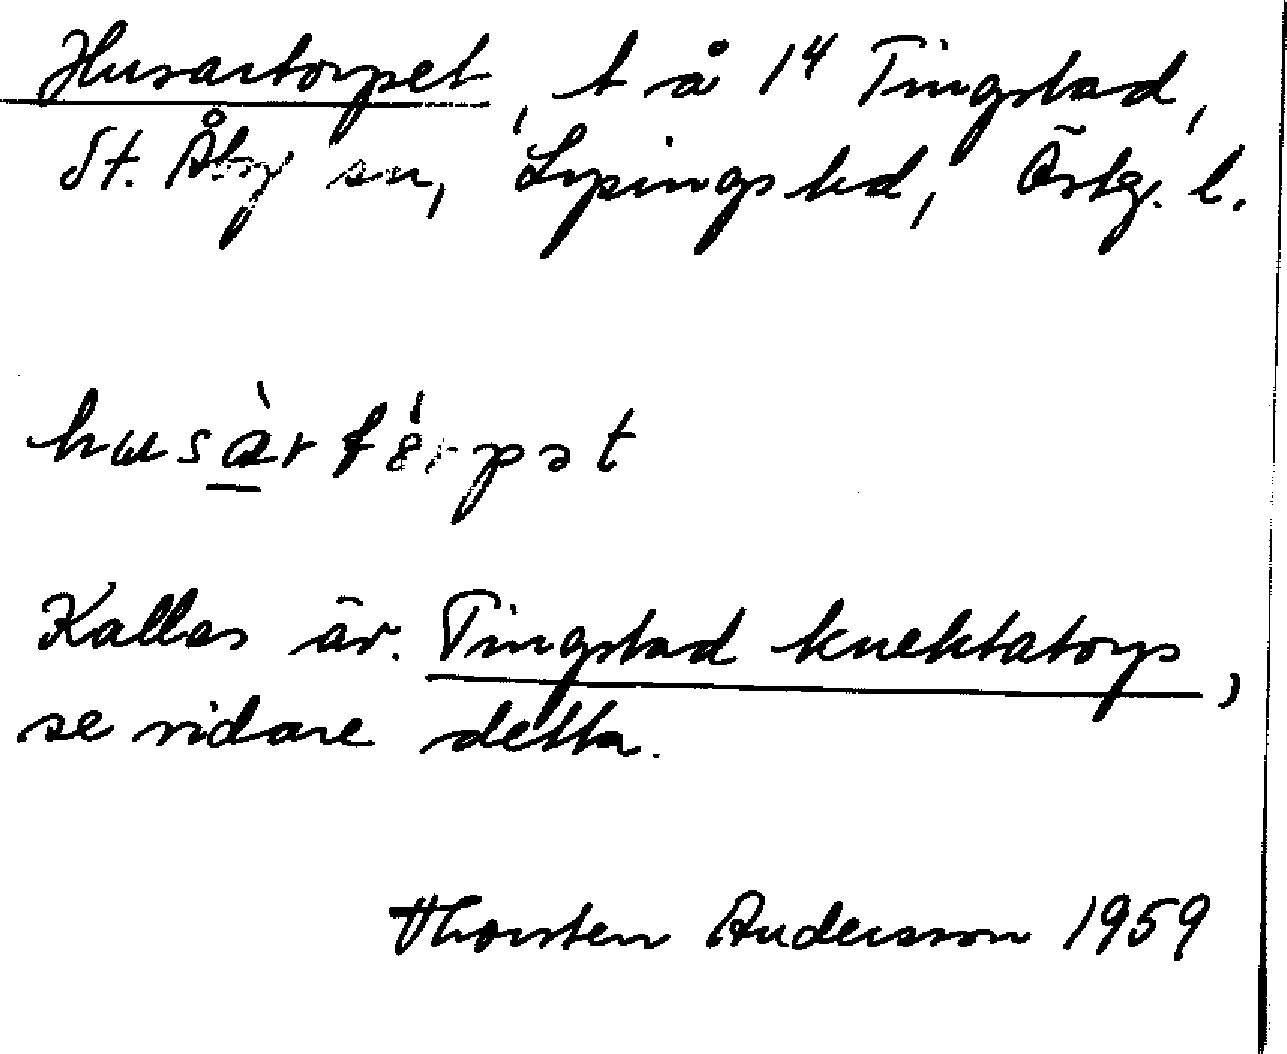 Husartorpet, t å 1⁴ Tingstad,
St. Åby sn, Lysings hd, Östg. l.
husàrtórpət
Kallas äv. Tingstad knektatorp,
se vidare detta.
Thorsten Andersson 1959